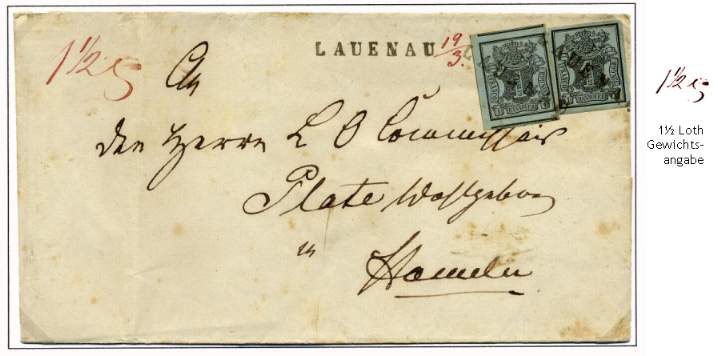 1½
LAUENAU 19/3.
An
den Herrn L O Commissair
Plate Wohlgeborn
in
Hameln
1½
1½ Loth
Gewichts-
angabe